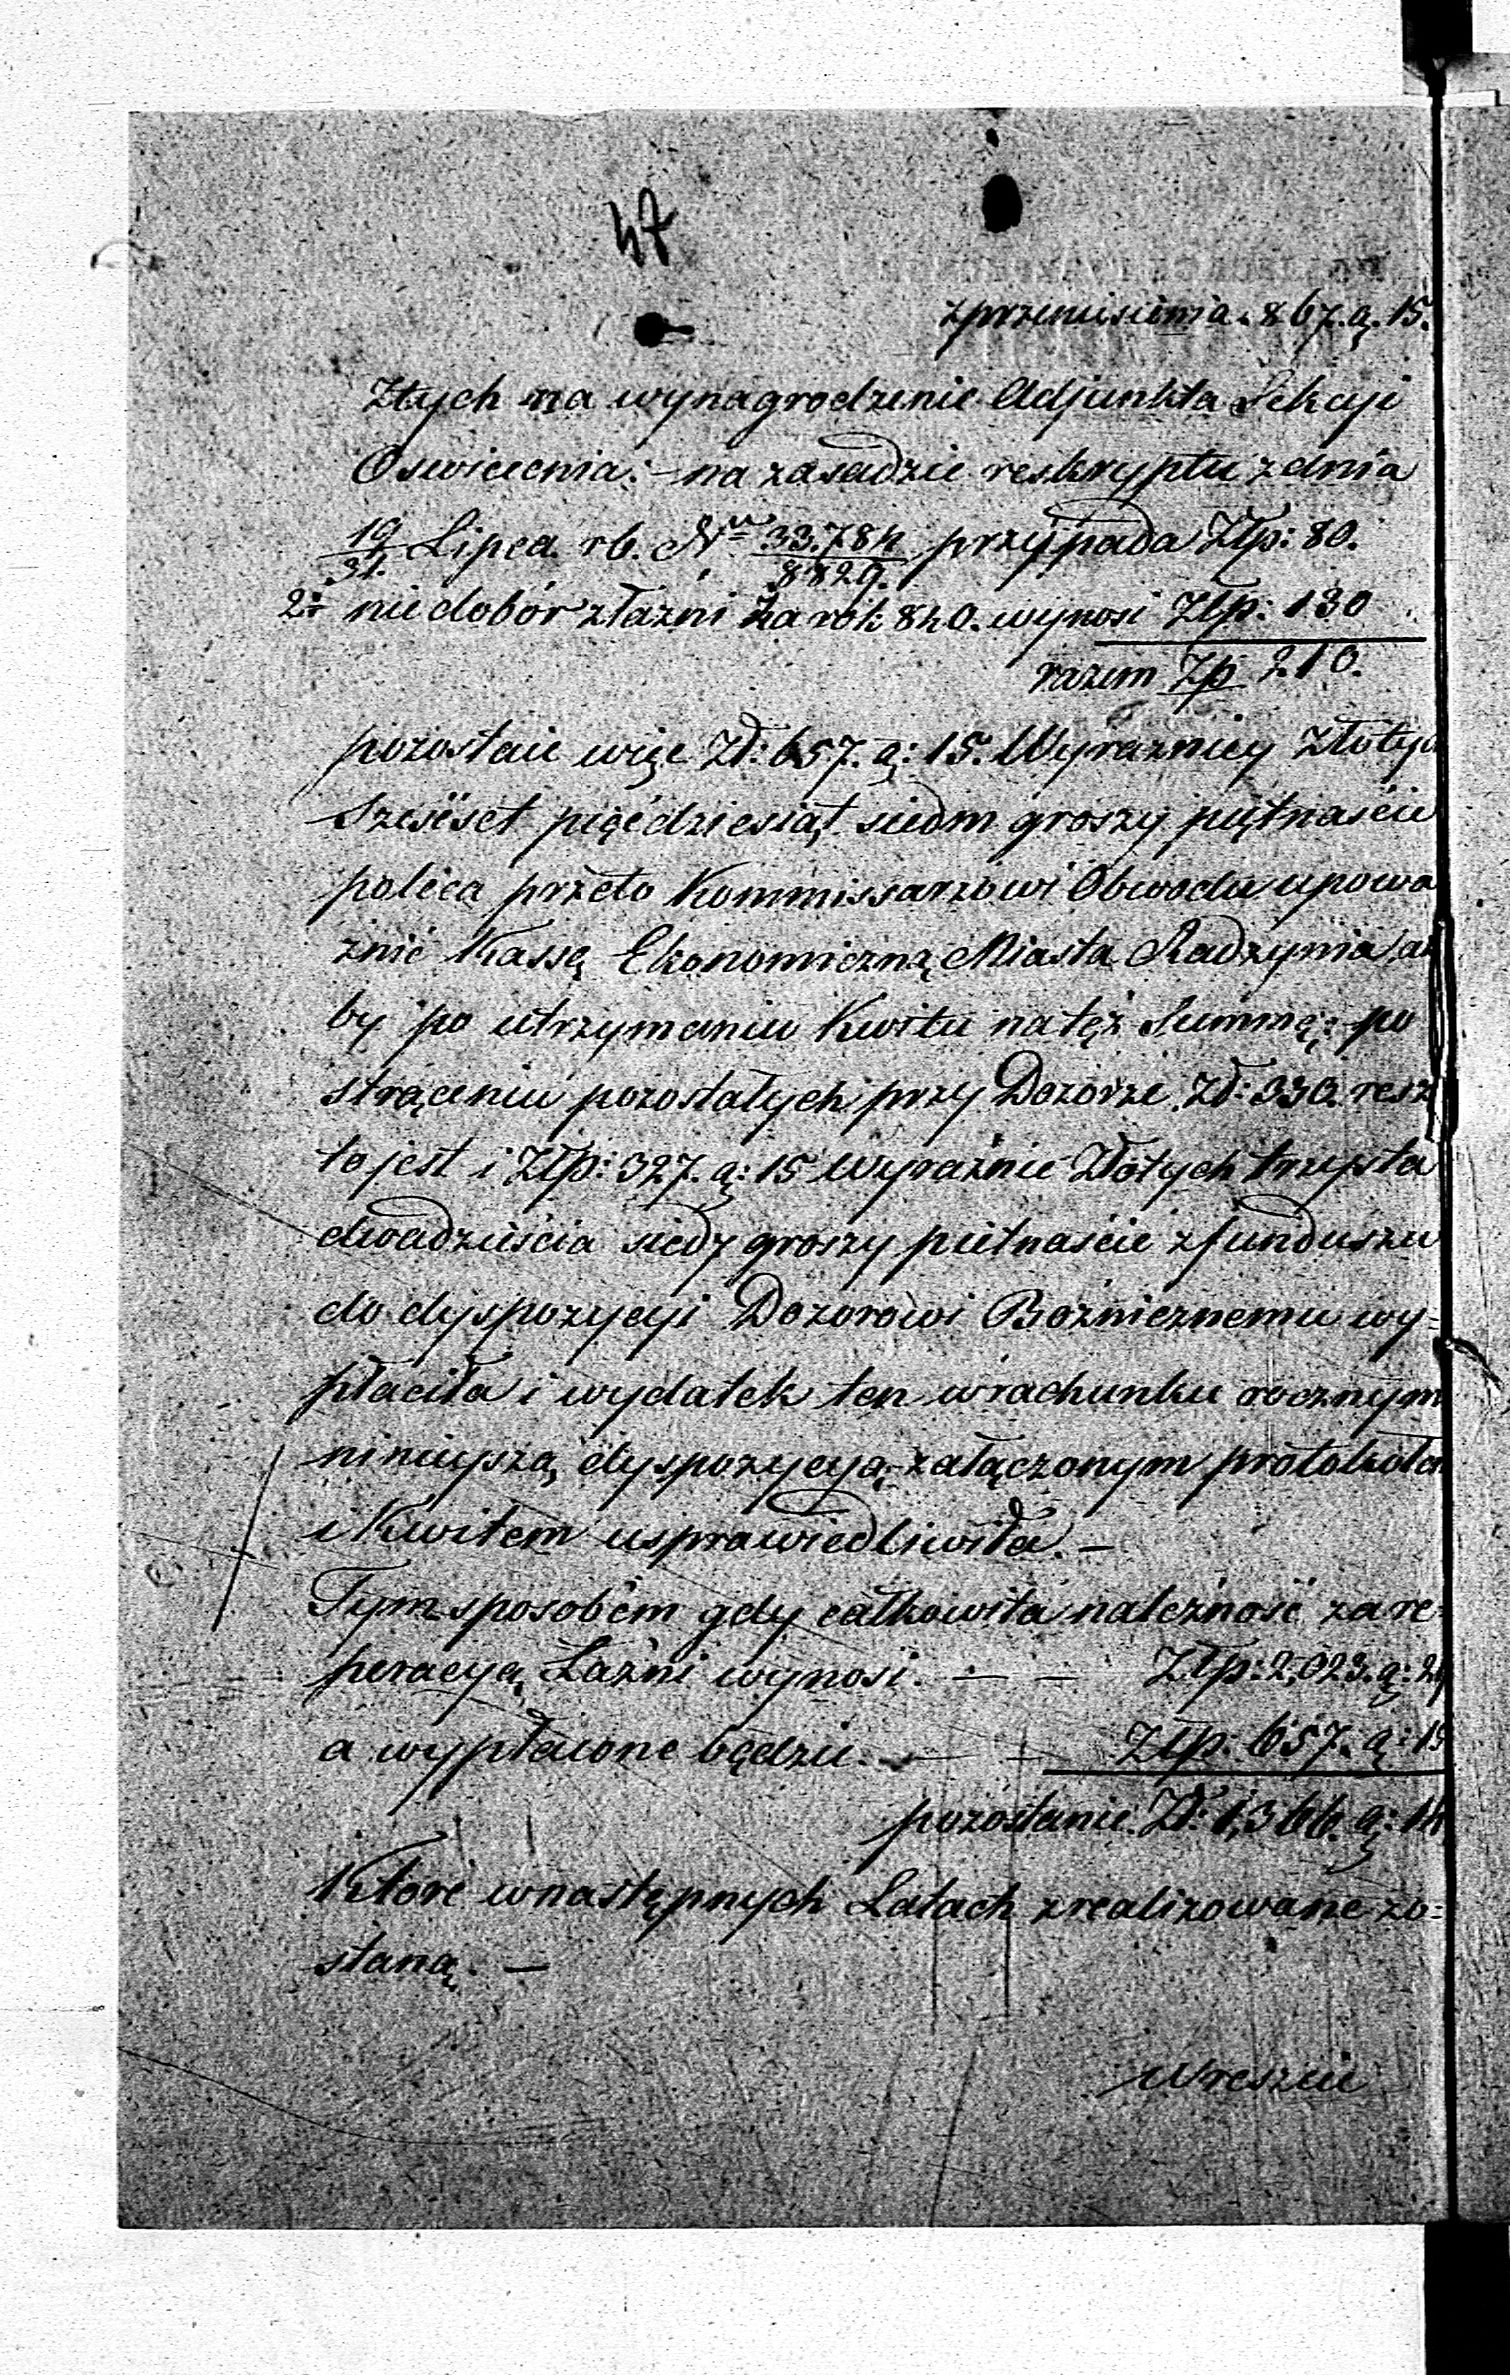 47
z przeniesienia. 867. g. 15.
Złtych na wynagrodzenie Adjunkta Sekcji
Oswiecenia: – na zasadzie reskryptu z dnia
19/31. Lipca. rb. Nru 33.784/8829. przypada Złp: 80.
2re niedobór z łaźni za rok 840. wynosi Złp: 130
razem Zp 210.
pozostaie więc Zł: 657. g: 15. Wyrazniey Złotych
Sześćset pięćdziesiąt siedm groszy piętnaście
poleca przeto Kommissarzowi Obwodu upowa
żnić Kassę Ekonomiczną Miasta Radzymia, a
by po utrzymaniu Kwitu na tęż Summę; po
strąceniu pozostałych przy Dozorze Zł: 330. resz
to jest i Złp: 327. g: 15 wyraźnie Złotych trzysta
dwadzieścia siedy groszy piętnaście z funduszu
do dyspozycyi Dozorowi Bożnicznemu wy=
płaciła i wydatek ten w rachunku rocznym
ninieyszą dyspozycyą, załączonym protokołem
i Kwitem usprawiedliwiła. –
Tym sposobem gdy całkowita należność za re=
peracyą Łaźni wynosi. — — Złp: 2,023. g: 29
a wypłacone będzie. — — Złp: 657. g: 15
pozostanie. Zł: 1,366. g: 14
Które w następnych Latach zrealizowane zo=
staną. –
Wreszcie